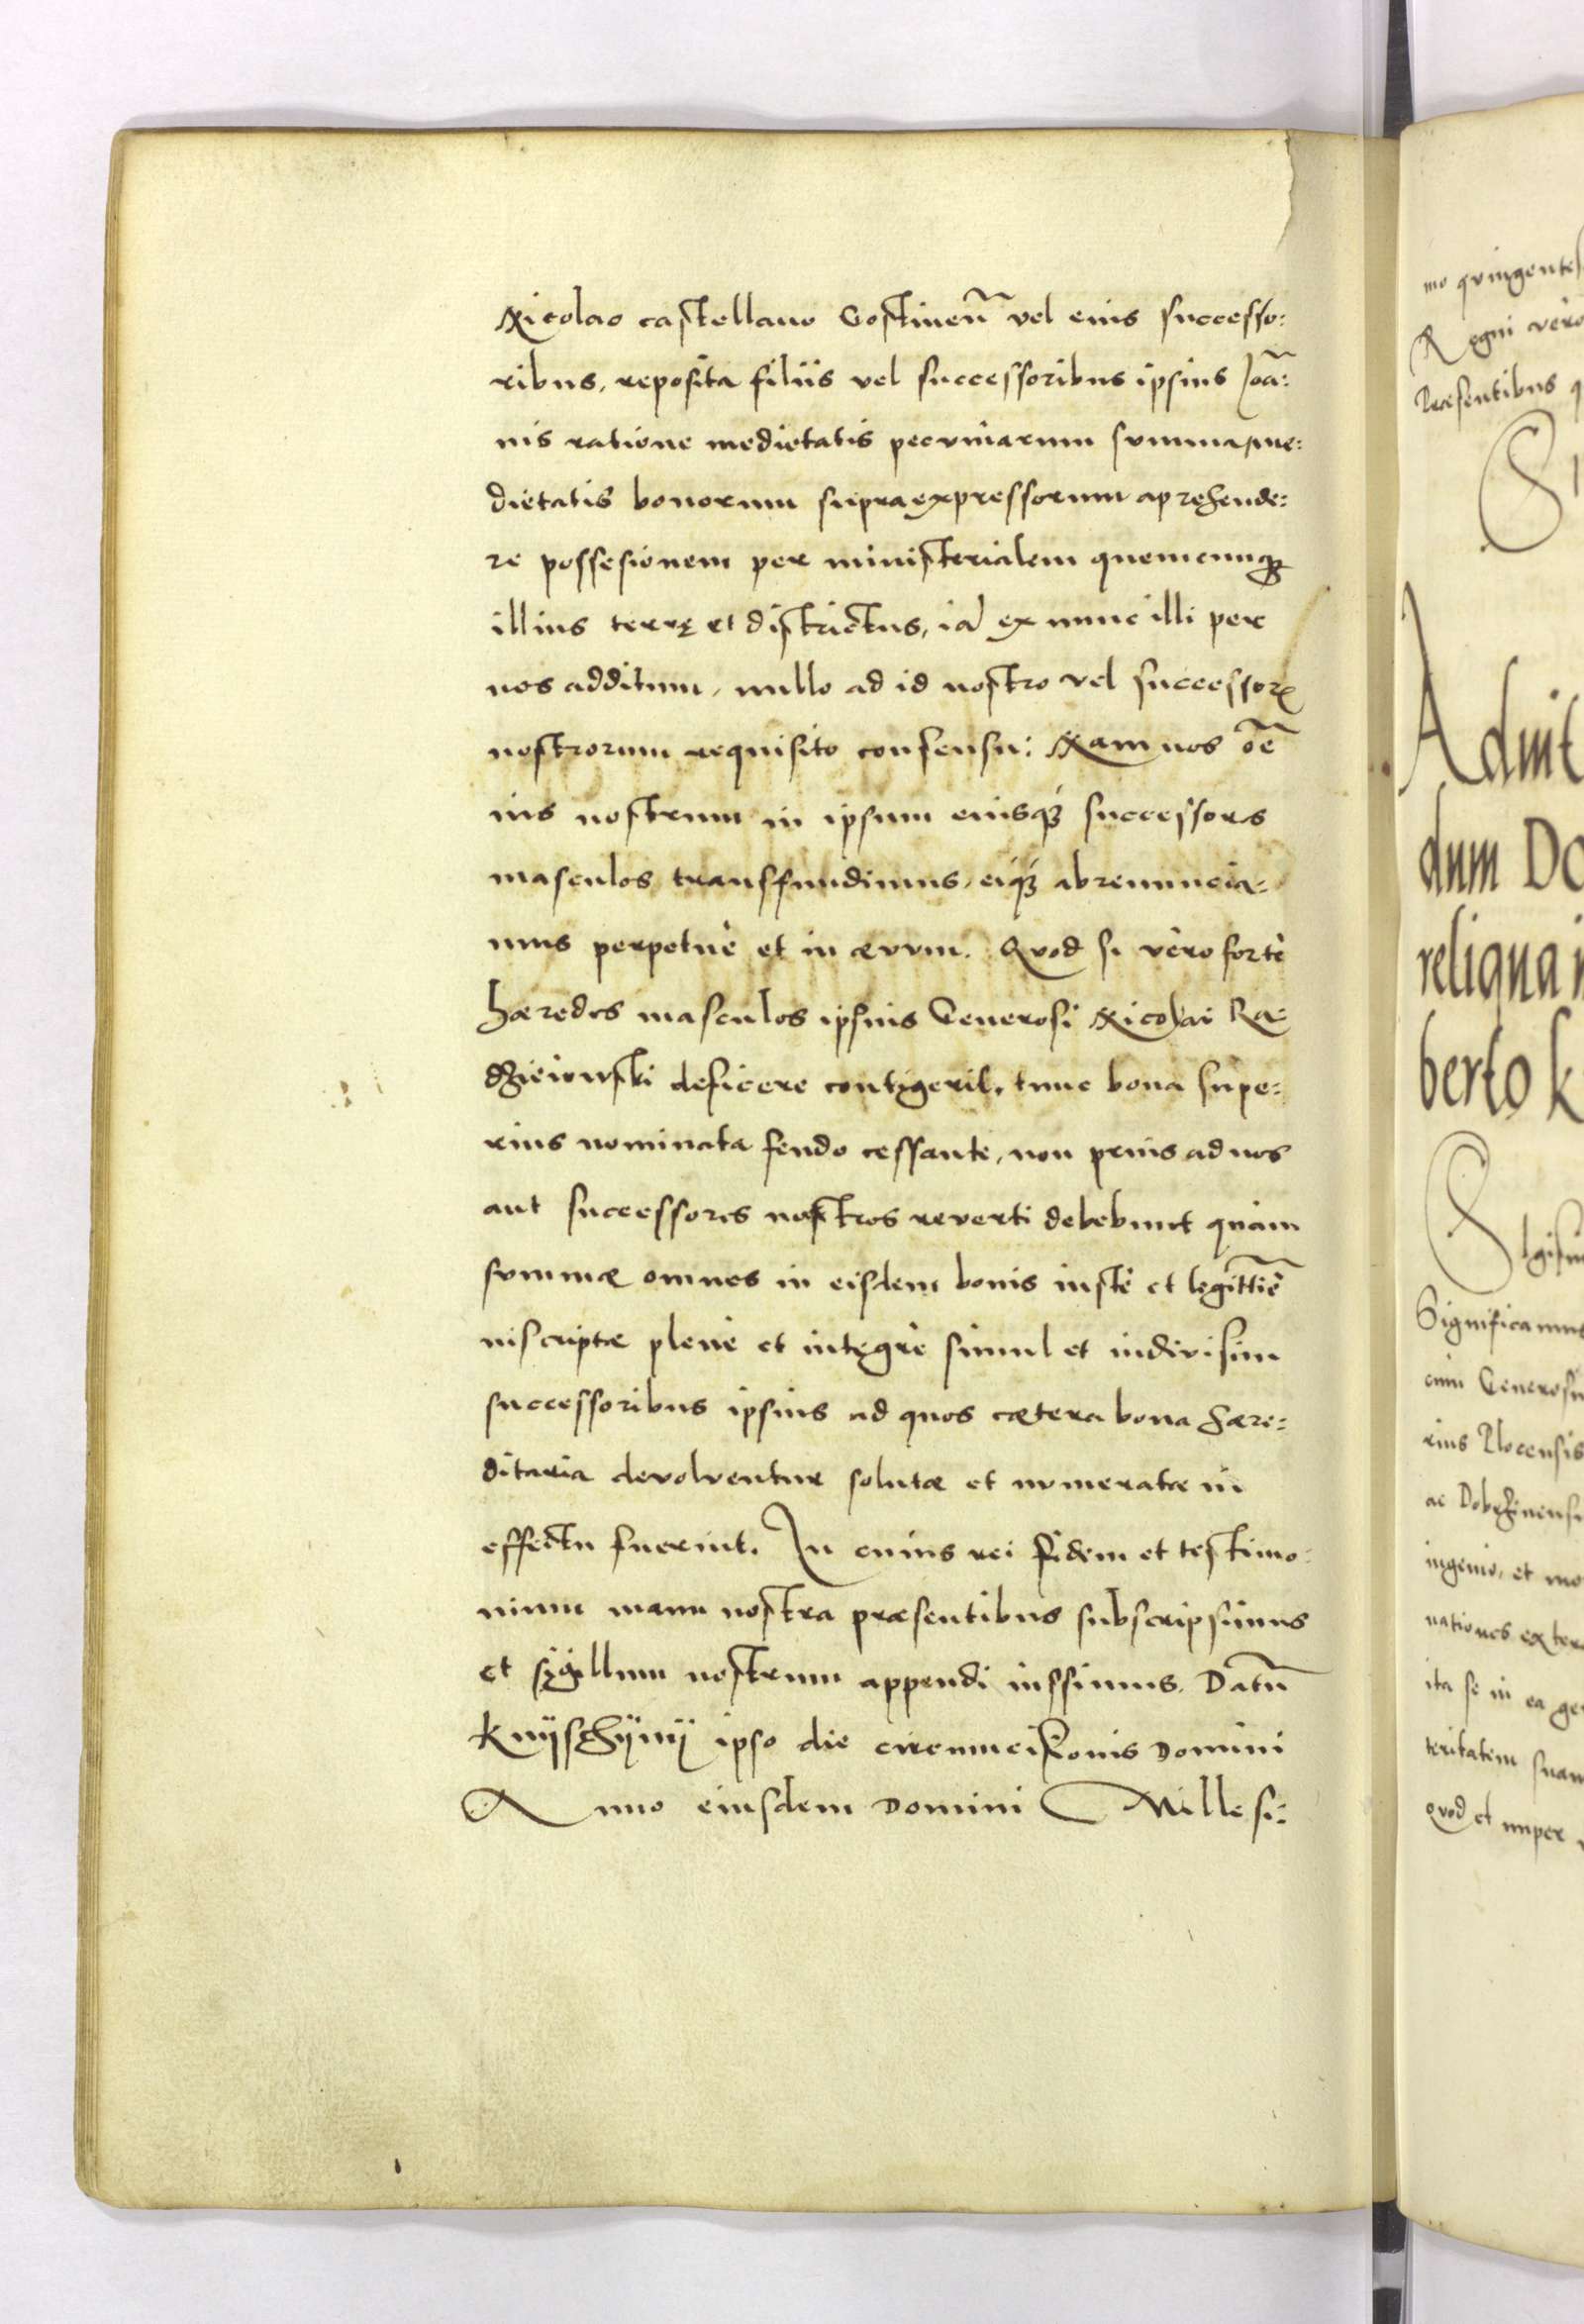 Nicolao castellano Gostineñ vel eius successo:
ribus, reposita filiis vel successoribus ipsius Joã:
nis ratione medietatis pecuniarum summa, me:
dietatis bonorum supraexpressorum aprehende:
re possesionem per ministerialem quemcunqꝫ
illius terrę et districtus, iã ex nunc illi per
nos additum, nullo ad id nostro vel successorꝝ
nostrorum requisito consensu: Nam nos oẽ
ius nostrum in ipsum eiusqꝫ successores
masculos transfundimus, eiqꝫ abrenuncia:
mus perpetuè et in ævum. Quod si vèro fortè
hæredes masculos ipsius Generosi Nicolai Ra:
dzieiowski deficere contigerit, tunc bona supe:
rius nominata feudo cessante, non prius ad nos
aut successores nostros reverti debebunt quàm
summæ omnes in eisdem bonis iustè et legittiẽ
inscriptæ plenè et integrè simul et indivisim
successoribus ipsius ad quos cætera bona hære:
ditaria devolventur solutæ et numeratæ in
effectu fuerint. In cuius rei fidem et testimo:
nium manu nostra præsentibus subscripsimus
et sÿgillum nostrum appendi iussimus. Datũ
Knÿschÿnÿ ipso die circumcisionis Domini
Anno eiusdem Domini Millesi:
mo quingente
Regni vero
Præsentibus q
Admit
dum Do
reliqua i
berto k
Significamus
cum Generosu
rius Plocensis
ac Dobrzinensi
ingenio, et mo
nationes exter
ita se in ea ge
teritatem suam
quod et nuper